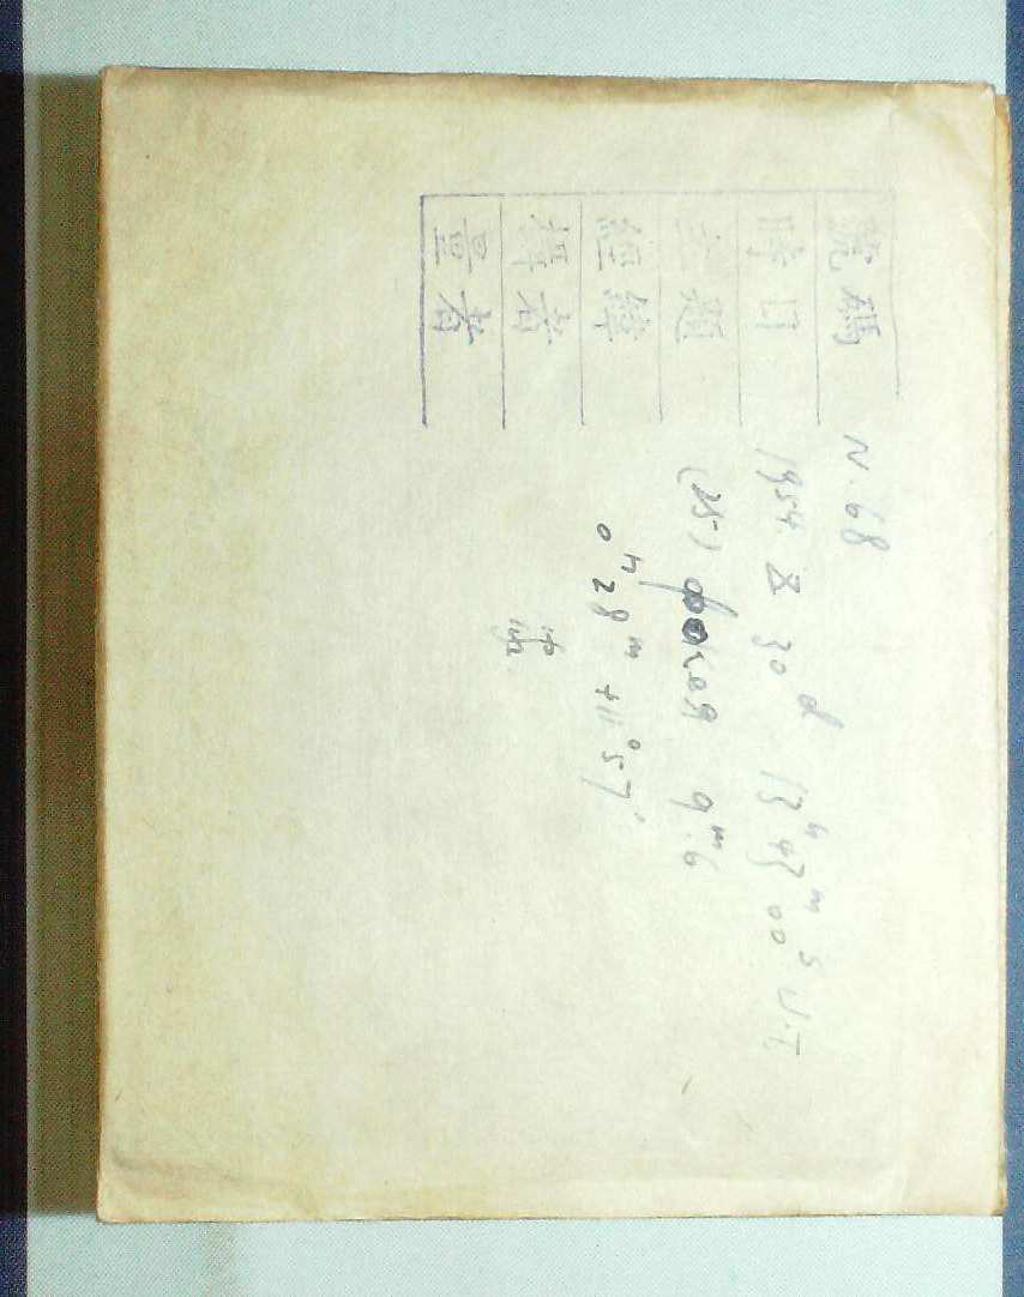 號碼 N. 68
時日 1954 X 30ᵈ 13ʰ 43ᵐ 00ˢ U.T
主題 (25) Фокея 9ᵐ.6
經緯 0ʰ 28ᵐ +11°57′
者
量者